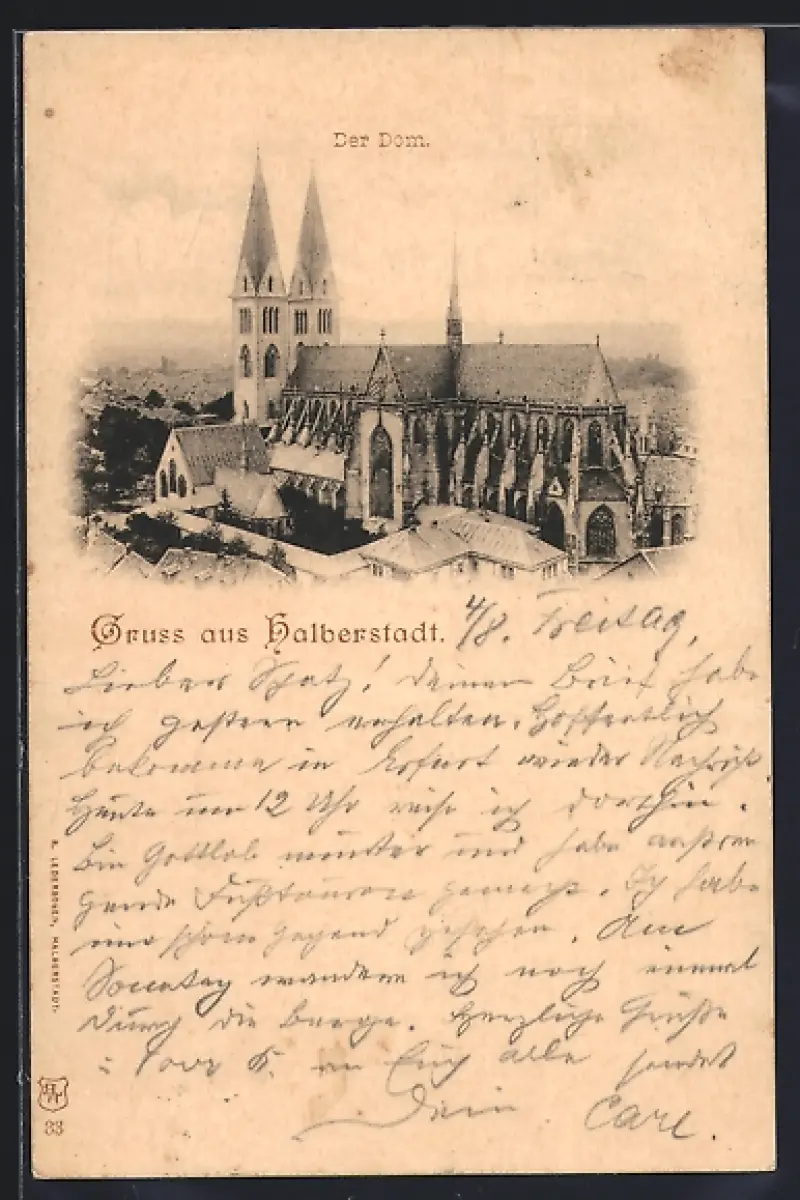 Der Dom.
Gruss aus Halberstadt. 4/8. Freitag,
Lieber Schatz! Deinen Brief habe
ich gestern erhalten. Hoffentlich
bekomme in Erfurt wieder Nachricht
Heute um 12 Uhr reise ich dorthin.
Bin Gottlob munter und habe anstren
gende Fußtouren gemacht. Ich habe
eine schöne Gegend gesehen. Am
Sonntag wandere ich noch einmal
durch die Berge. Herzliche Grüße
an Euch alle sendet
Dein Carl.
R. LEDERBOGEN, HALBERSTADT.
33